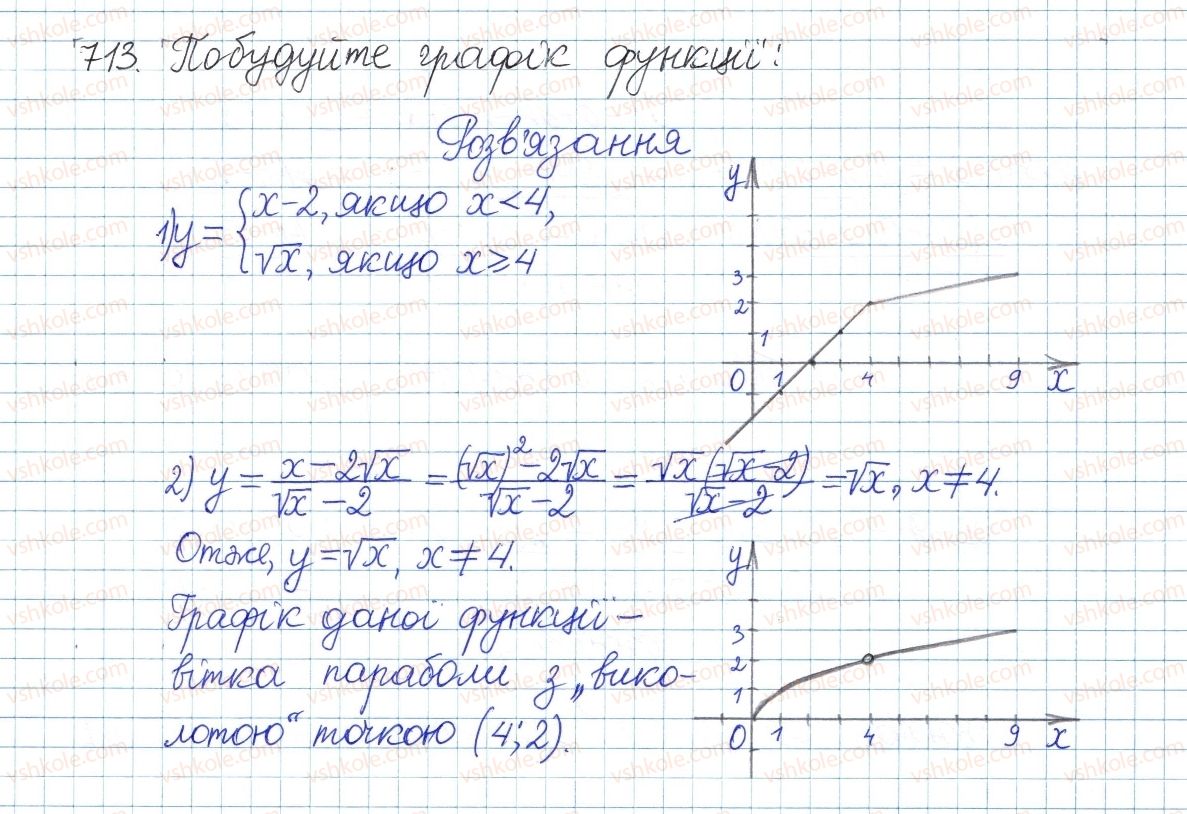 713. Побудуйте графік функції:
Розв'язання
1) y = { x-2, якщо x<4,
√x, якщо x⩾4
y
3
2
1
0 1 4 9 x
2) y = (x-2√x)/(√x-2) = ((√x)²-2√x)/(√x-2) = (√x(√x-2))/(√x-2) = √x, x≠4.
Отже, y=√x, x≠4.
Графік даної функції -
вітка параболи з „вико-
лотою“ точкою (4;2).
y
3
2
1
0 1 4 9 x
vshkole.com